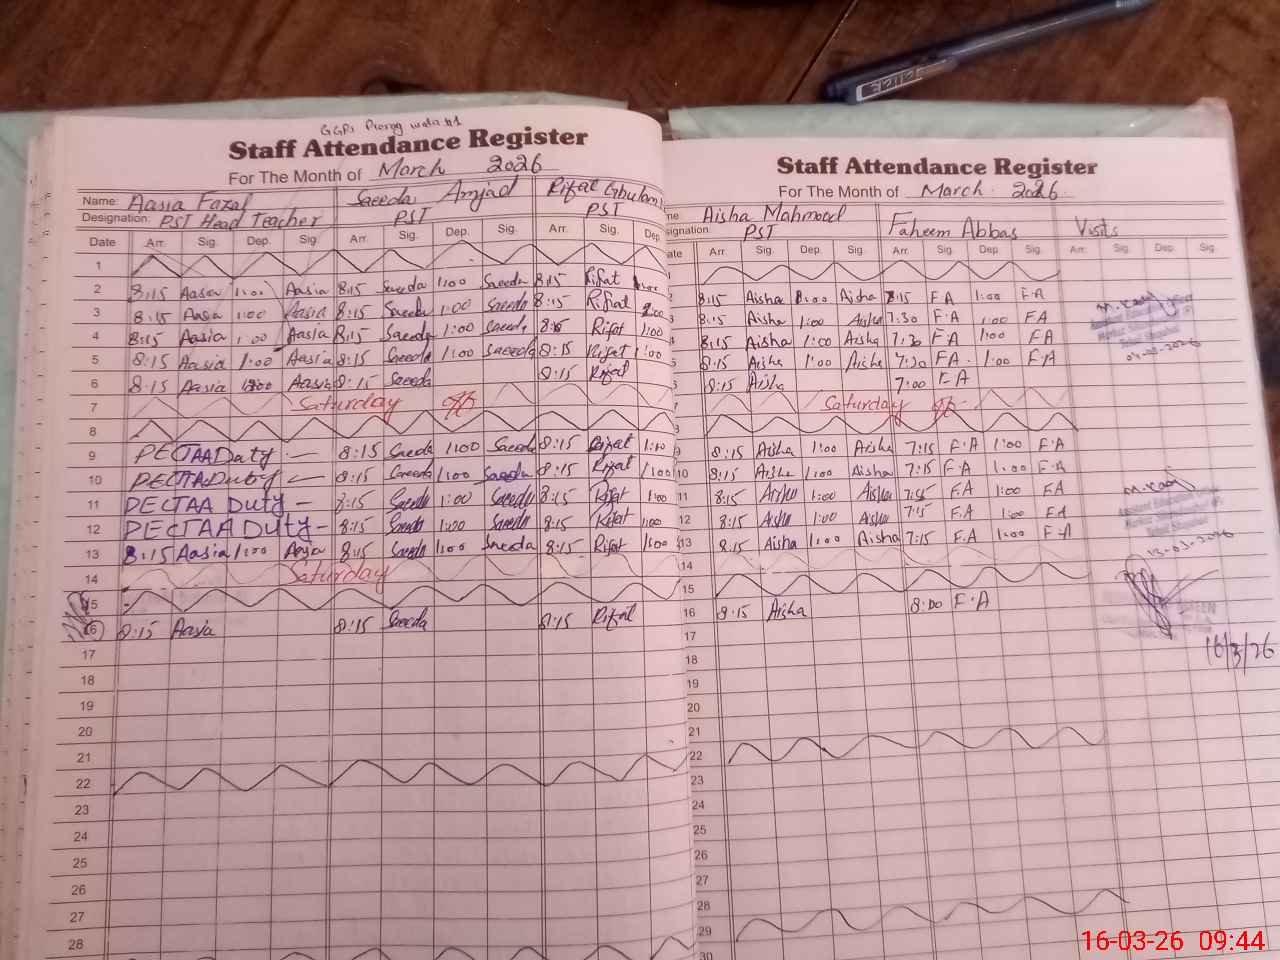 CLICK
GGPS
Staff Attendance Register
For The Month of March 2026
Name: Aasia Fazal Saeeda Amjad Rifat Ghulam
Designation: PST Head Teacher PST PST
Date Arr. Sig. Dep. Sig. Arr. Sig. Dep. Sig. Arr. Sig. Dep.
1
2 8:15 Aasia 1:00 Aasia 8:15 Saeeda 1:00 Saeeda 8:15 Rifat 1:00
3 8:15 Aasia 1:00 Aasia 8:15 Saeeda 1:00 Saeeda 8:15 Rifat 1:00
4 8:15 Aasia 1:00 Aasia 8:15 Saeeda 1:00 Saeeda 8:15 Rifat 1:00
5 8:15 Aasia 1:00 Aasia 8:15 Saeeda 1:00 Saeeda 8:15 Rifat 1:00
6 8:15 Aasia 1:00 Aasia 8:15 Saeeda 8:15 Rifat
7 Saturday off
8
9 PECTAA Duty - 8:15 Saeeda 1:00 Saeeda 8:15 Rifat 1:00
10 PECTAA Duty - 8:15 Saeeda 1:00 Saeeda 8:15 Rifat 1:00
11 PECTAA Duty - 8:15 Saeeda 1:00 Saeeda 8:15 Rifat 1:00
12 PECTAA Duty - 8:15 Saeeda 1:00 Saeeda 8:15 Rifat 1:00
13 8:15 Aasia 1:00 Aasia 8:15 Saeeda 1:00 Saeeda 8:15 Rifat 1:00
14 Saturday
15
16 8:15 Aasia 8:15 Saeeda 8:15 Rifat
17
18
19
20
21
22
23
24
25
26
27
28
Staff Attendance Register
For The Month of March 2026
me Aisha Mahmood Faheem Abbas Visits
signation: PST
ate Arr. Sig. Dep. Sig. Arr. Sig. Dep. Sig. Arr. Sig. Dep. Sig.
1
2 8:15 Aisha 1:00 Aisha 8:15 F A 1:00 F.A
3 8:15 Aisha 1:00 Aisha 7:30 F.A 1:00 FA
4 8:15 Aisha 1:00 Aisha 7:30 F A 1:00 FA
5 8:15 Aisha 1:00 Aisha 7:30 FA. 1:00 F.A
6 8:15 Aisha 7:00 F.A
7 Saturday off
8
9 8:15 Aisha 1:00 Aisha 7:15 F.A 1:00 F.A
10 8:15 Aisha 1:00 Aisha 7:15 F.A 1:00 F.A
11 8:15 Aisha 1:00 Aisha 7:15 F.A 1:00 F.A
12 8:15 Aisha 1:00 Aisha 7:15 F.A 1:00 FA
13 8:15 Aisha 1:00 Aisha 7:15 F.A 1:00 F.A
13-03-2026
14
15
16 8:15 Aisha 8:00 F.A
16/3/26
17
18
19
20
21
22
23
24
25
26
27
28
29
30
16-03-26 09:44